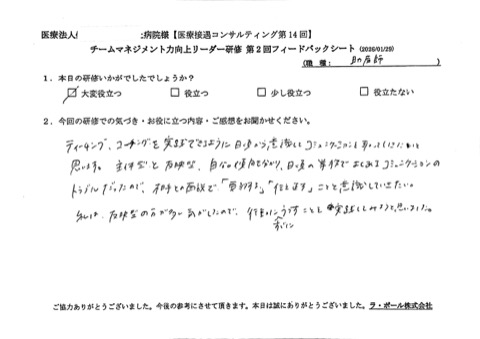 医療法人 :病院様【医療接遇コンサルティング第14回】
チームマネジメント力向上リーダー研修 第2回フィードバックシート (2026/01/29)
(職 種: 助産師 )
1. 本日の研修いかがでしたでしょうか?
大変役立つ 役立つ 少し役立つ 役立たない
2. 今回の研修での気づき・お役に立つ内容・ご感想をお聞かせください。
ティーチング、コーチングを実践できるように日頃から意識してコミュニケーションを
思います。 主体型と反映型、自分の傾向 日頃の コミュニケーションの
トラブルだったので、 の面談で「質問する」「伝え返す」ことを意識していきたい。
私は、反映型の方が多い気がしたので、行動にうつすことも実践してみようと思いました。
すぐに
ご協力ありがとうございました。今後の参考にさせて頂きます。本日は誠にありがとうございました。ラ・ポール株式会社